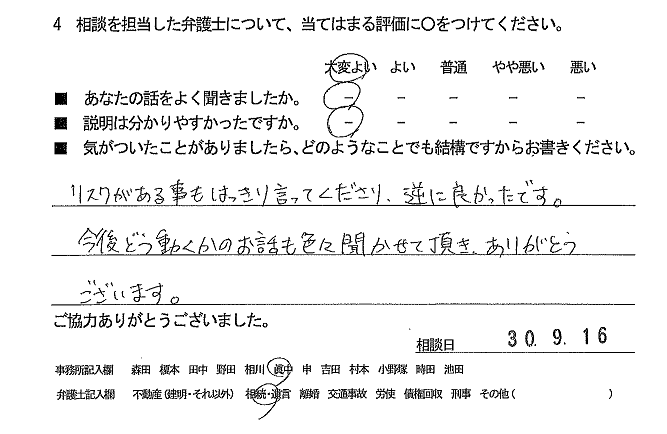 4 相談を担当した弁護士について、当てはまる評価に〇をつけてください。
大変よい よい 普通 やや悪い 悪い
■ あなたの話をよく聞きましたか。 － － － － －
■ 説明は分かりやすかったですか。 － － － － －
■ 気がついたことがありましたら、どのようなことでも結構ですからお書きください。
リスクがある事もはっきり言ってくださり、逆に良かったです。
今後どう動くかのお話も色々聞かせて頂き、ありがとう
ございます。
ご協力ありがとうございました。
相談日 30. 9. 16
事務所記入欄 森田 榎本 田中 野田 相川 眞中 申 吉田 村本 小野塚 時田 池田
弁護士記入欄 不動産（建明・それ以外） 相続・遺言 離婚 交通事故 労使 債権回収 刑事 その他（ ）